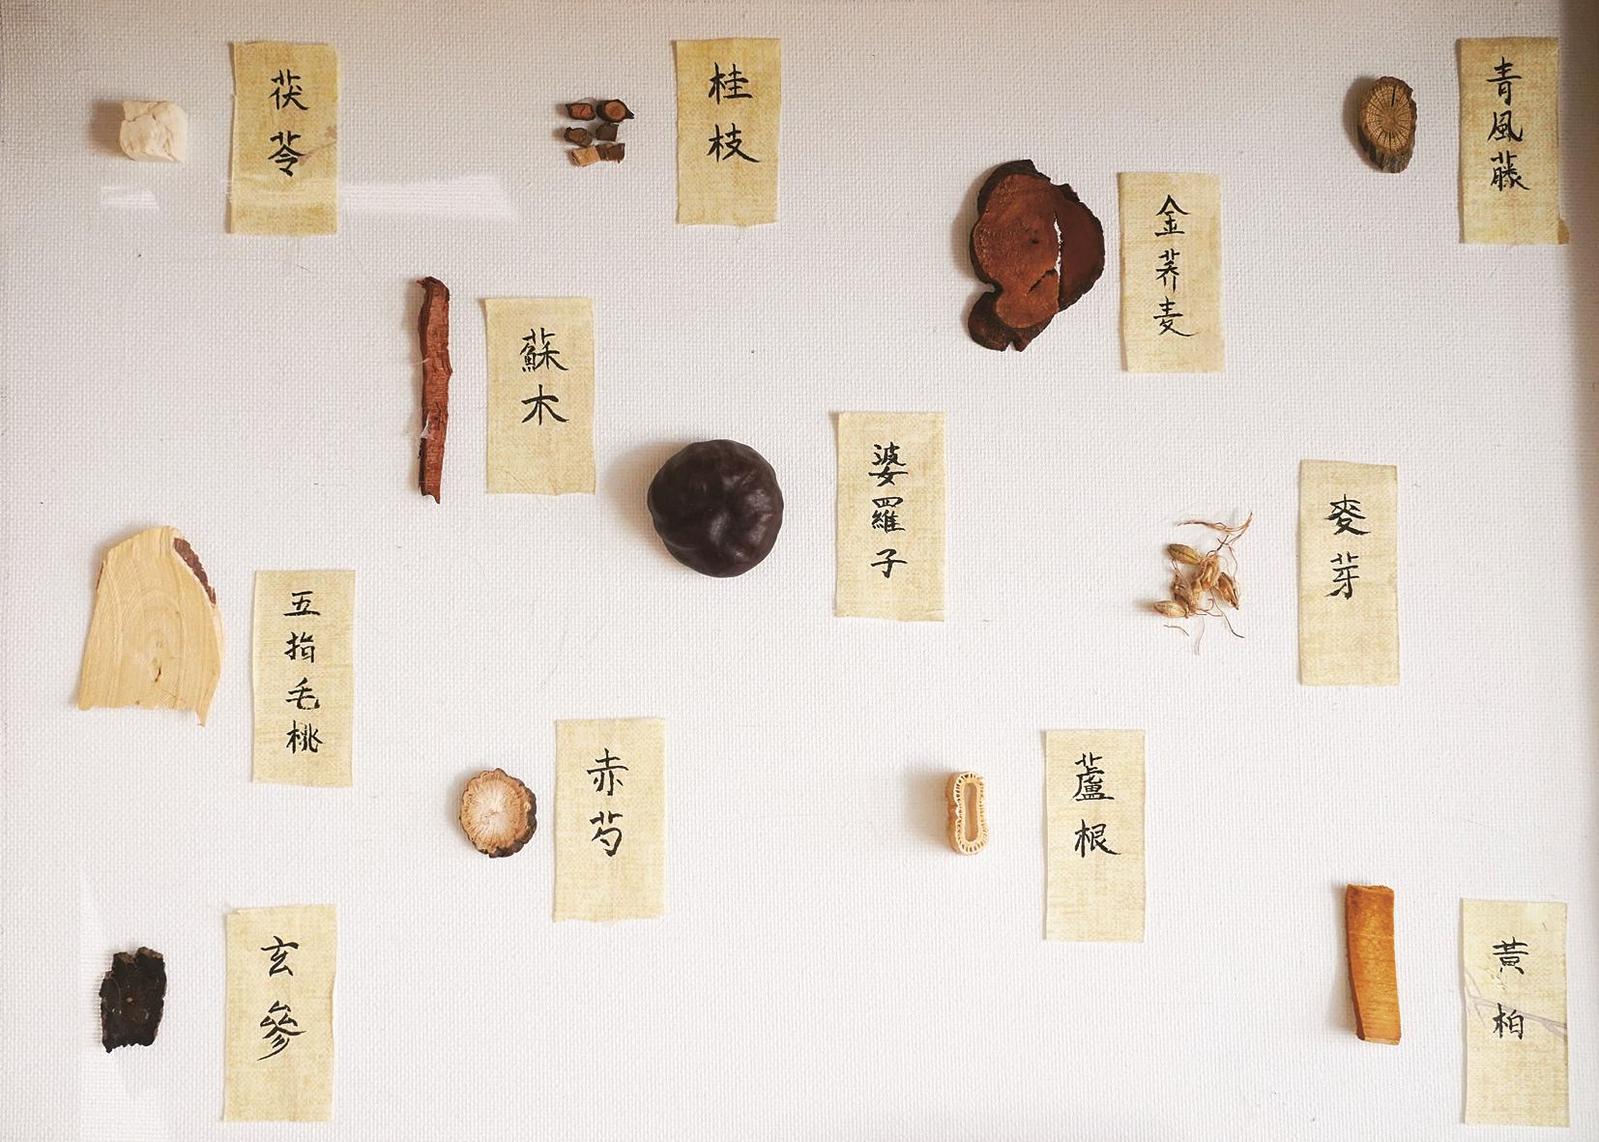 茯苓
桂枝
青風藤
金荞麦
蘇木
婆羅子
麥芽
五指毛桃
赤芍
蘆根
玄參
黃柏